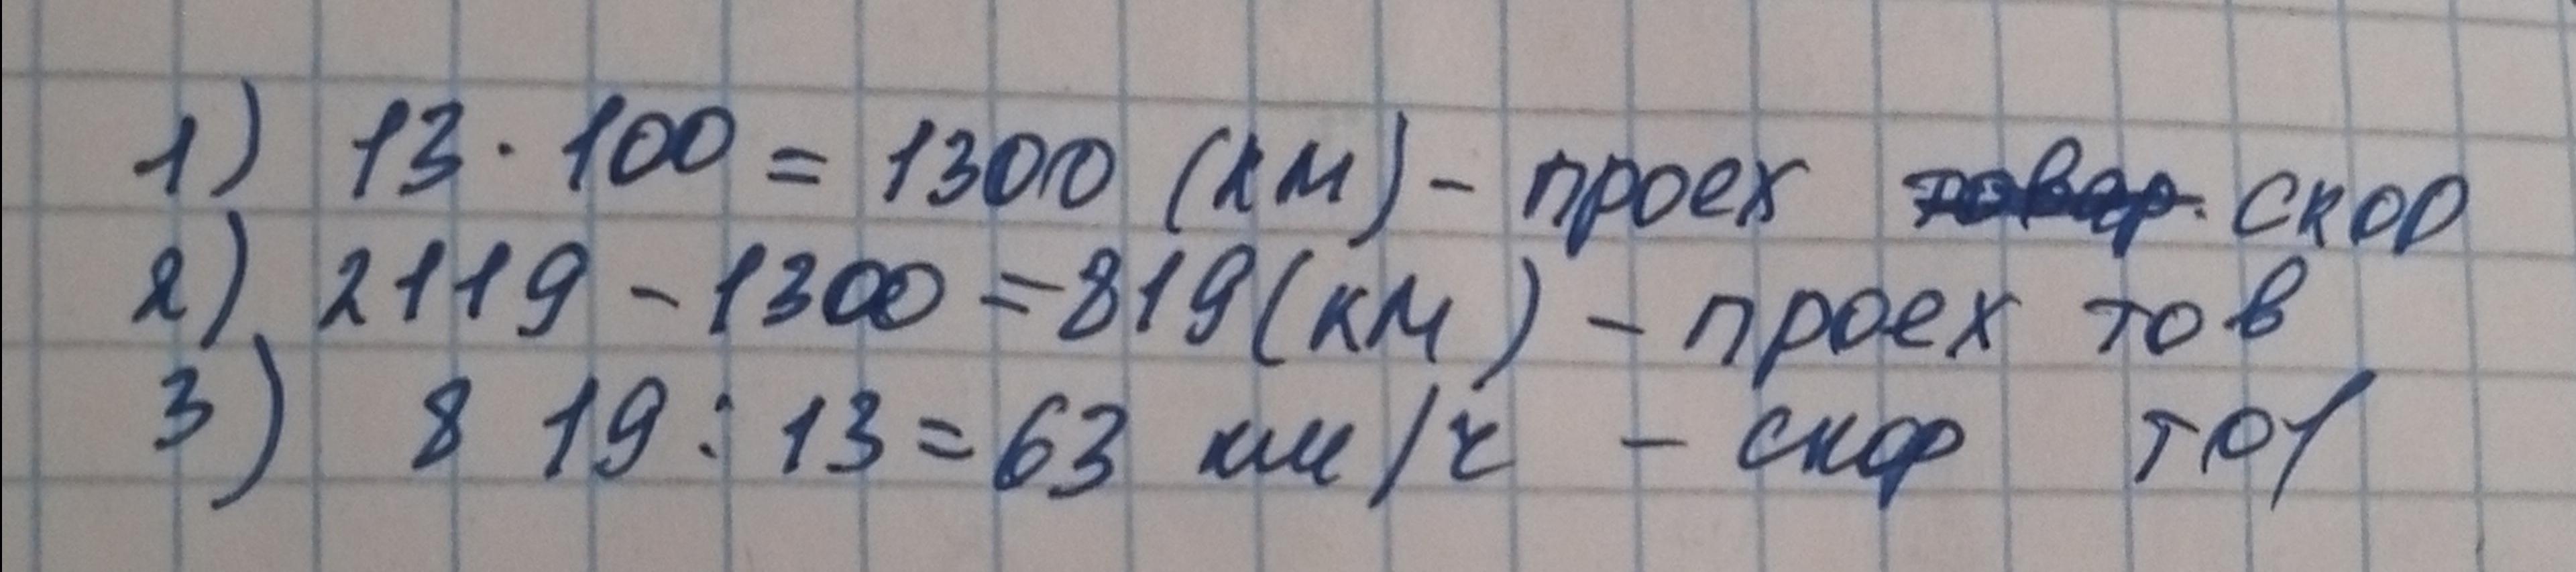 1) 13 · 100 = 1300 (км) - проех товар. скор
2) 2119 - 1300 = 819 (км) - проех тов
3) 819 : 13 = 63 км/ч - скор тов